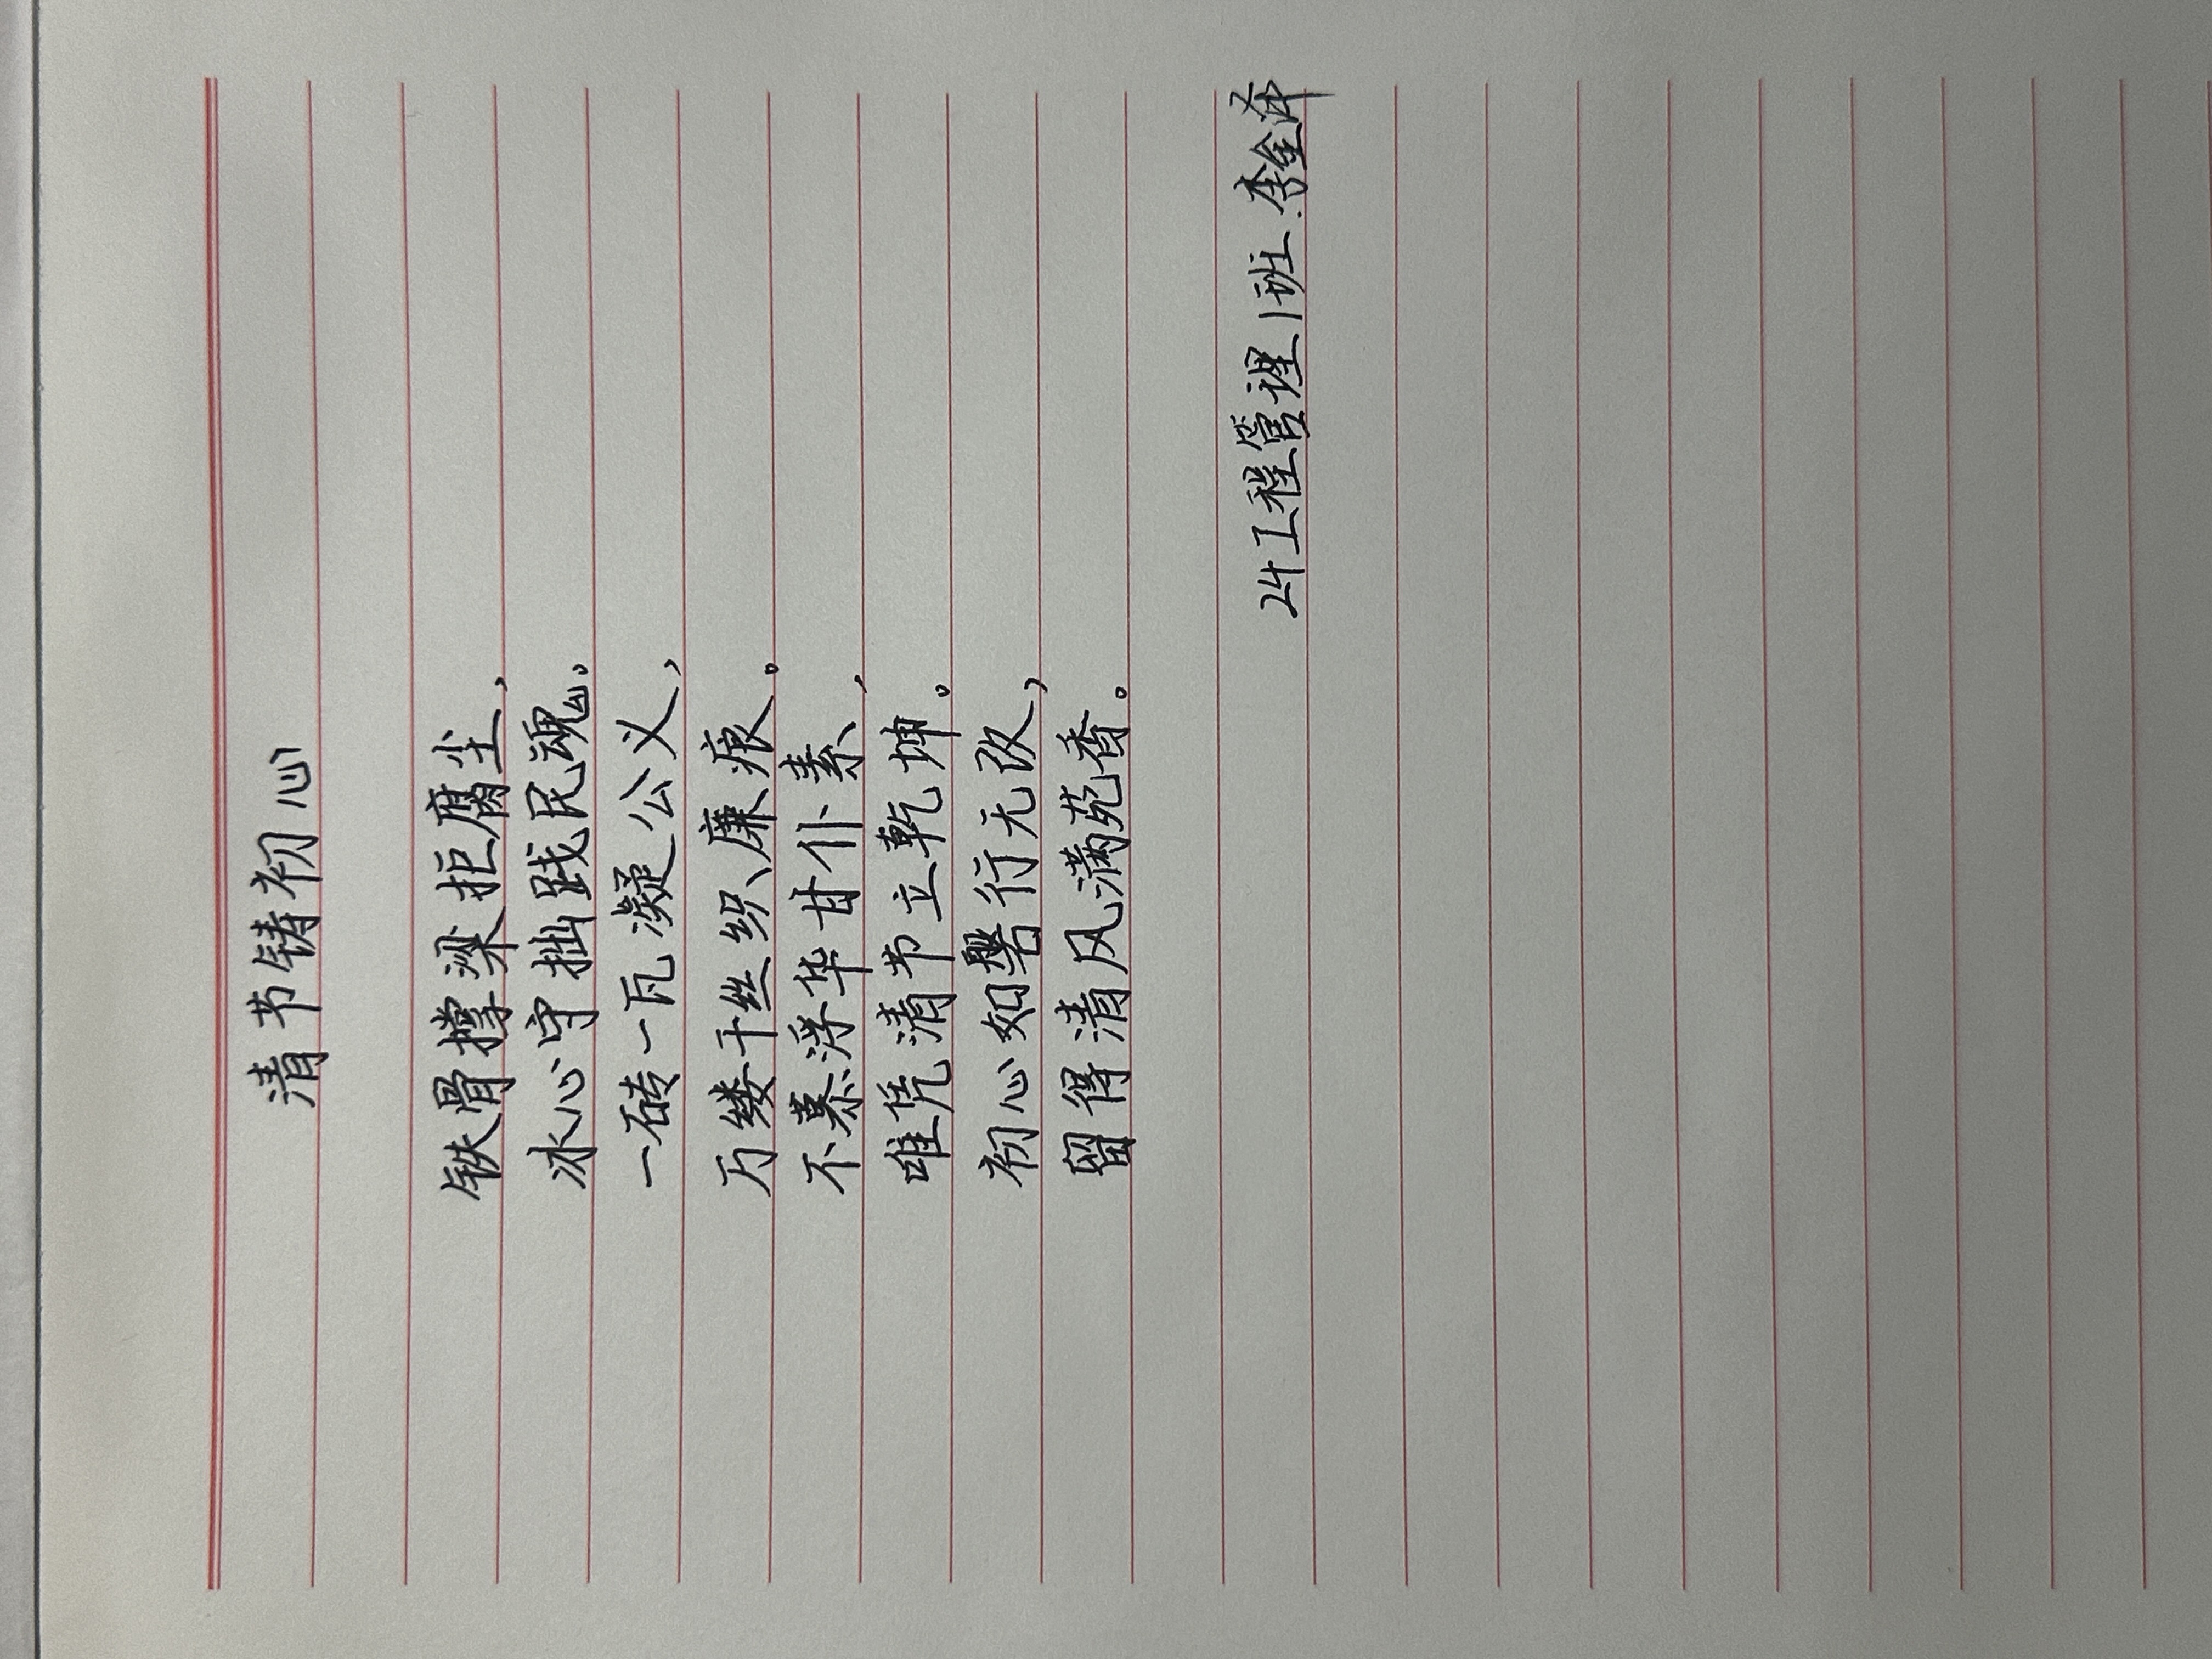 清节铸初心
铁骨撑梁拒腐尘，
冰心守拙践民魂。
一砖一瓦凝公义，
万缕千丝织廉痕。
不慕浮华甘仆素，
唯凭清节立乾坤。
初心如磐行无改，
留得清风满苑香。
24工程管理1班 李金泽